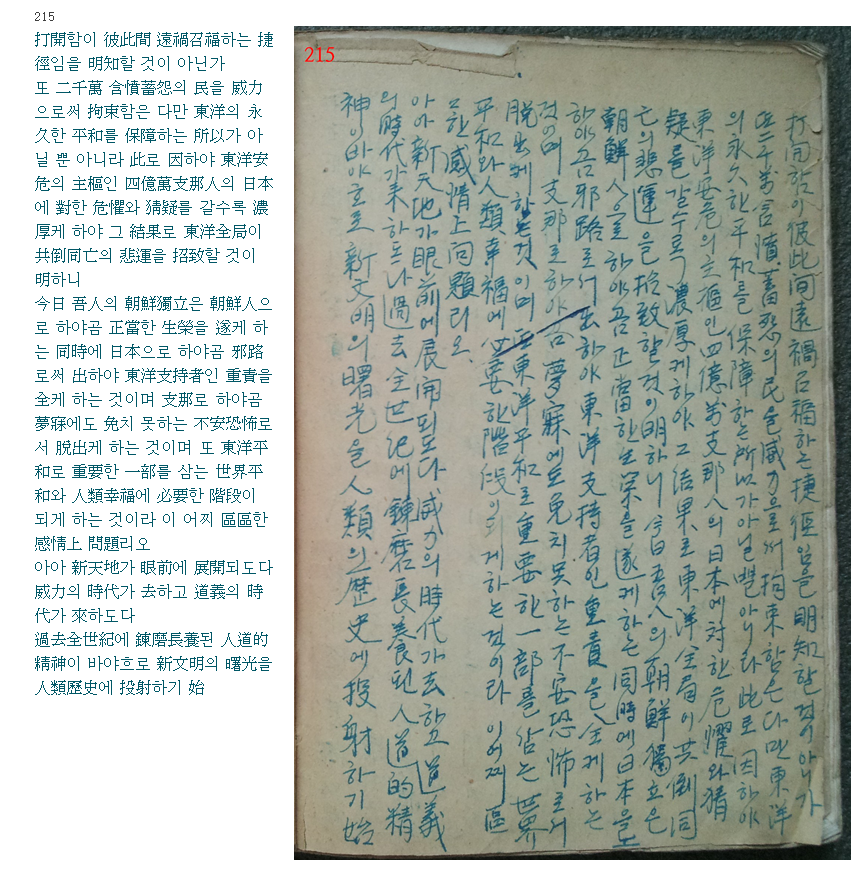 215
打開함이 彼此間 遠禍召福하는 捷
徑임을 明知할 것이 아닌가
또 二千萬 含憤蓄怨의 民을 威力
으로써 拘束함은 다만 東洋의 永
久한 平和를 保障하는 所以가 아
닐 뿐 아니라 此로 因하야 東洋安
危의 主樞인 四億萬支那人의 日本
에 對한 危懼와 猜疑를 갈수록 濃
厚케 하야 그 結果로 東洋全局이
共倒同亡의 悲運을 招致할 것이
明하니
今日 吾人의 朝鮮獨立은 朝鮮人으
로 하야곰 正當한 生榮을 遂케 하
는 同時에 日本으로 하야곰 邪路
로써 出하야 東洋支持者인 重責을
全케 하는 것이며 支那로 하야곰
夢寐에도 免치 못하는 不安恐怖로
서 脫出케 하는 것이며 또 東洋平
和로 重要한 一部를 삼는 世界平
和와 人類幸福에 必要한 階段이
되게 하는 것이라 이 어찌 區區한
感情上 問題리오
아아 新天地가 眼前에 展開되도다
威力의 時代가 去하고 道義의 時
代가 來하도다
過去全世紀에 鍊磨長養된 人道的
精神이 바야흐로 新文明의 曙光을
人類歷史에 投射하기 始
215
打開함이 彼此间 遠禍召福하는 捷徑임을 明知할 것이 아닌가
또 二千萬 含憤蓄怨의 民을 威力으로써 拘束함은 다만 東洋
의 永久한 平和를 保障하는 所以가 아닐 뿐 아니라 此로 因하야
東洋安危의 主樞인 四億萬支那人의 日本에 対한 危懼와 猜
疑를 갈수록 濃厚케 하야 그 結果로 東洋全局이 共倒同
亡의 悲運을 招致할 것이 明하니 今日 吾人의 朝鮮獨立은
朝鮮人으로 하야곰 正當한 生榮을 遂케 하는 同時에 日本으로
하야곰 邪路로서 出하야 東洋支持者인 重責을 全케 하는
것이며 支那로 하야곰 夢寐에도 免치 못하는 不安恐怖로서
脫出케 하는 것이며 또 東洋平和로 重要한 一部를 삼는 世界
平和와 人類幸福에 必要한 階段이 되게 하는 것이라 이 어찌 區
區한 感情上 问題리오
아아 新天地가 眼前에 展開되도다 威力의 時代가 去하고 道義
의 時代가 来하도다 過去全世紀에 鍊磨長養된 人道的精
神이 바야흐로 新文明의 曙光을 人類의 歷史에 投射하기 始